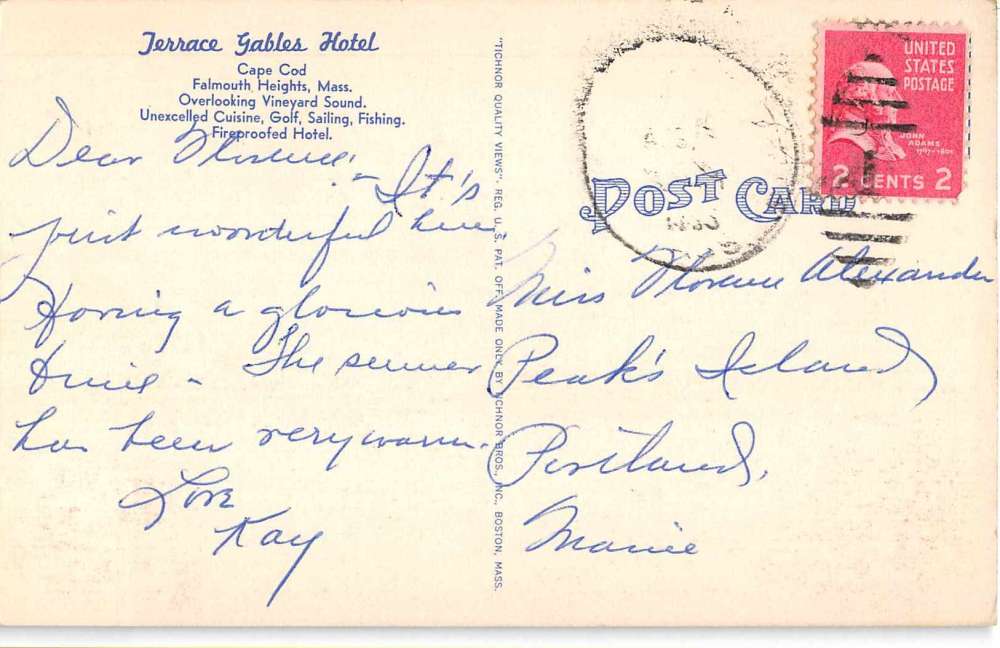 Terrace Gables Hotel
Cape Cod
Falmouth Heights, Mass.
Overlooking Vineyard Sound.
Unexcelled Cuisine, Golf, Sailing, Fishing.
Fireproofed Hotel.
Dear Florence:
- It's
just wonderful here.
Having a glorious
time - The summer
has been very warm.
Love
Kay
"TICHNOR QUALITY VIEWS". REG. U. S. PAT. OFF. MADE ONLY BY TICHNOR BROS., INC., BOSTON, MASS.
UNITED
STATES
POSTAGE
JOHN
ADAMS
1797-1801
2 CENTS 2
POST CARD
Miss Florence Alexander
Peak's Island
Portland,
Maine